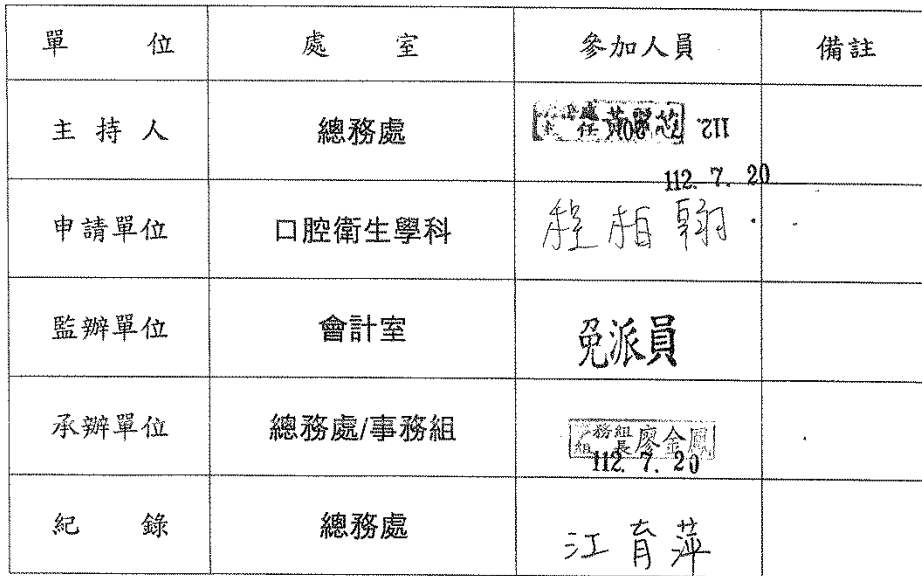 單 位 處 室 參加人員 備註
主 持 人 總務處
112. 7. 20
申請單位 口腔衛生學科 程柏翰
監辦單位 會計室 免派員
承辦單位 總務處/事務組 事務組組長廖金鳳
112. 7. 20
紀 錄 總務處 江育萍